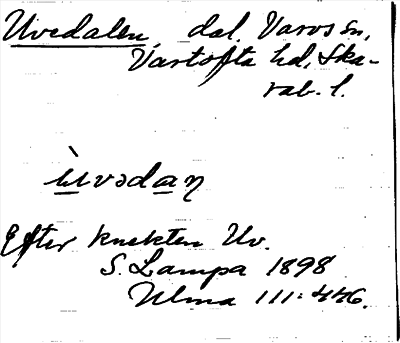 Uvedalen, dal. Varvs sn,
Vartofta hd, Ska-
rab. l.
ùvədaŋ
Efter knekten Uv.
S. Lampa 1898
Ulma 111:446.